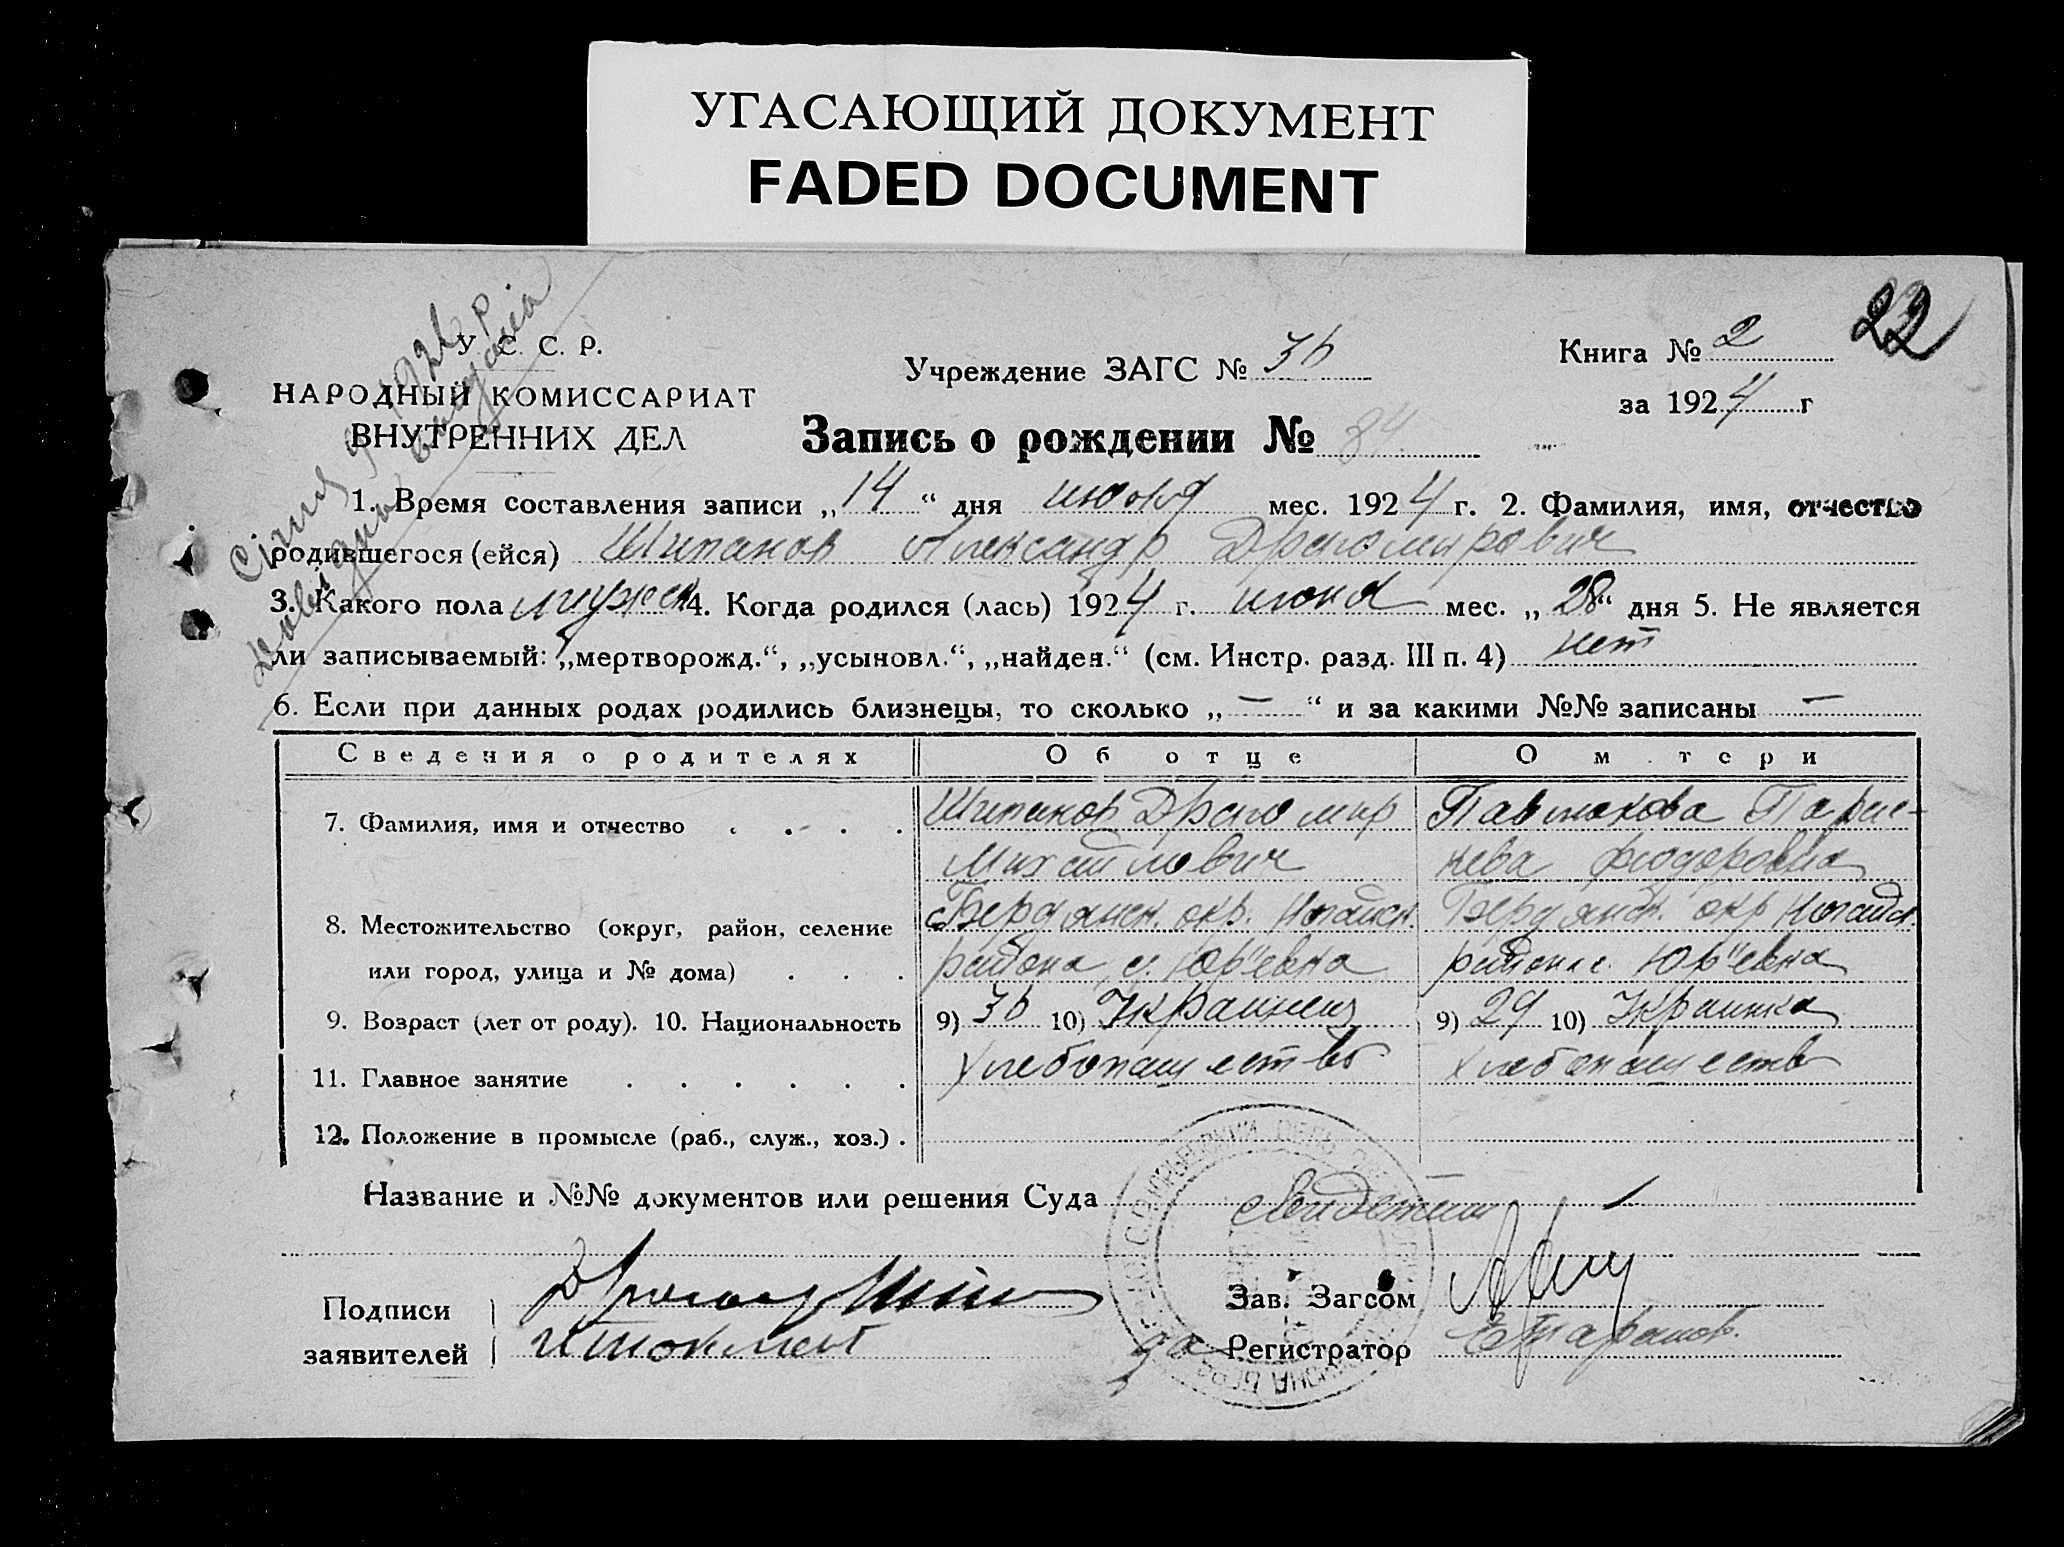 УГАСАЮЩИЙ ДОКУМЕНТ
FADED DOCUMENT
22
У. С. С. Р.
НАРОДНЫЙ КОМИССАРИАТ
ВНУТРЕННИХ ДЕЛ
Учреждение ЗАГС № 36
Книга № 2
за 1924 г
Запись о рождении № 84
1. Время составления записи „14“ дня июля мес. 1924 г. 2. Фамилия, имя, отчество
родившегося (ейся) Шипаков Александр Драгомирович
3. Какого пола мужск 4. Когда родился (лась) 1924 г. июня мес. „28“ дня 5. Не является
ли записываемый: „мертворожд.“, „усыновл.“, „найден.“ (см. Инстр. разд. III п. 4) нет
6. Если при данных родах родились близнецы, то сколько „—“ и за какими №№ записаны —
Сведения о родителях Об отце О м тери
7. Фамилия, имя и отчество Шипаков Драгомир
Михайлович
Фiодоровна
8. Местожительство (округ, район, селение
или город, улица и № дома)
Бердянск. окр. Ногайск. Бердянск. окр Ногайск.
района с. Юр"евка района с. Юр"евка
9. Возраст (лет от роду). 10. Национальность 9) 36 10) Украинец 9) 29 10) Украинка
11. Главное занятие Хлебопашество Хлебопашество
12. Положение в промысле (раб., служ., хоз.)
Название и №№ документов или решения Суда
Подписи
заявителей
Зав. Загсом
за Регистратор